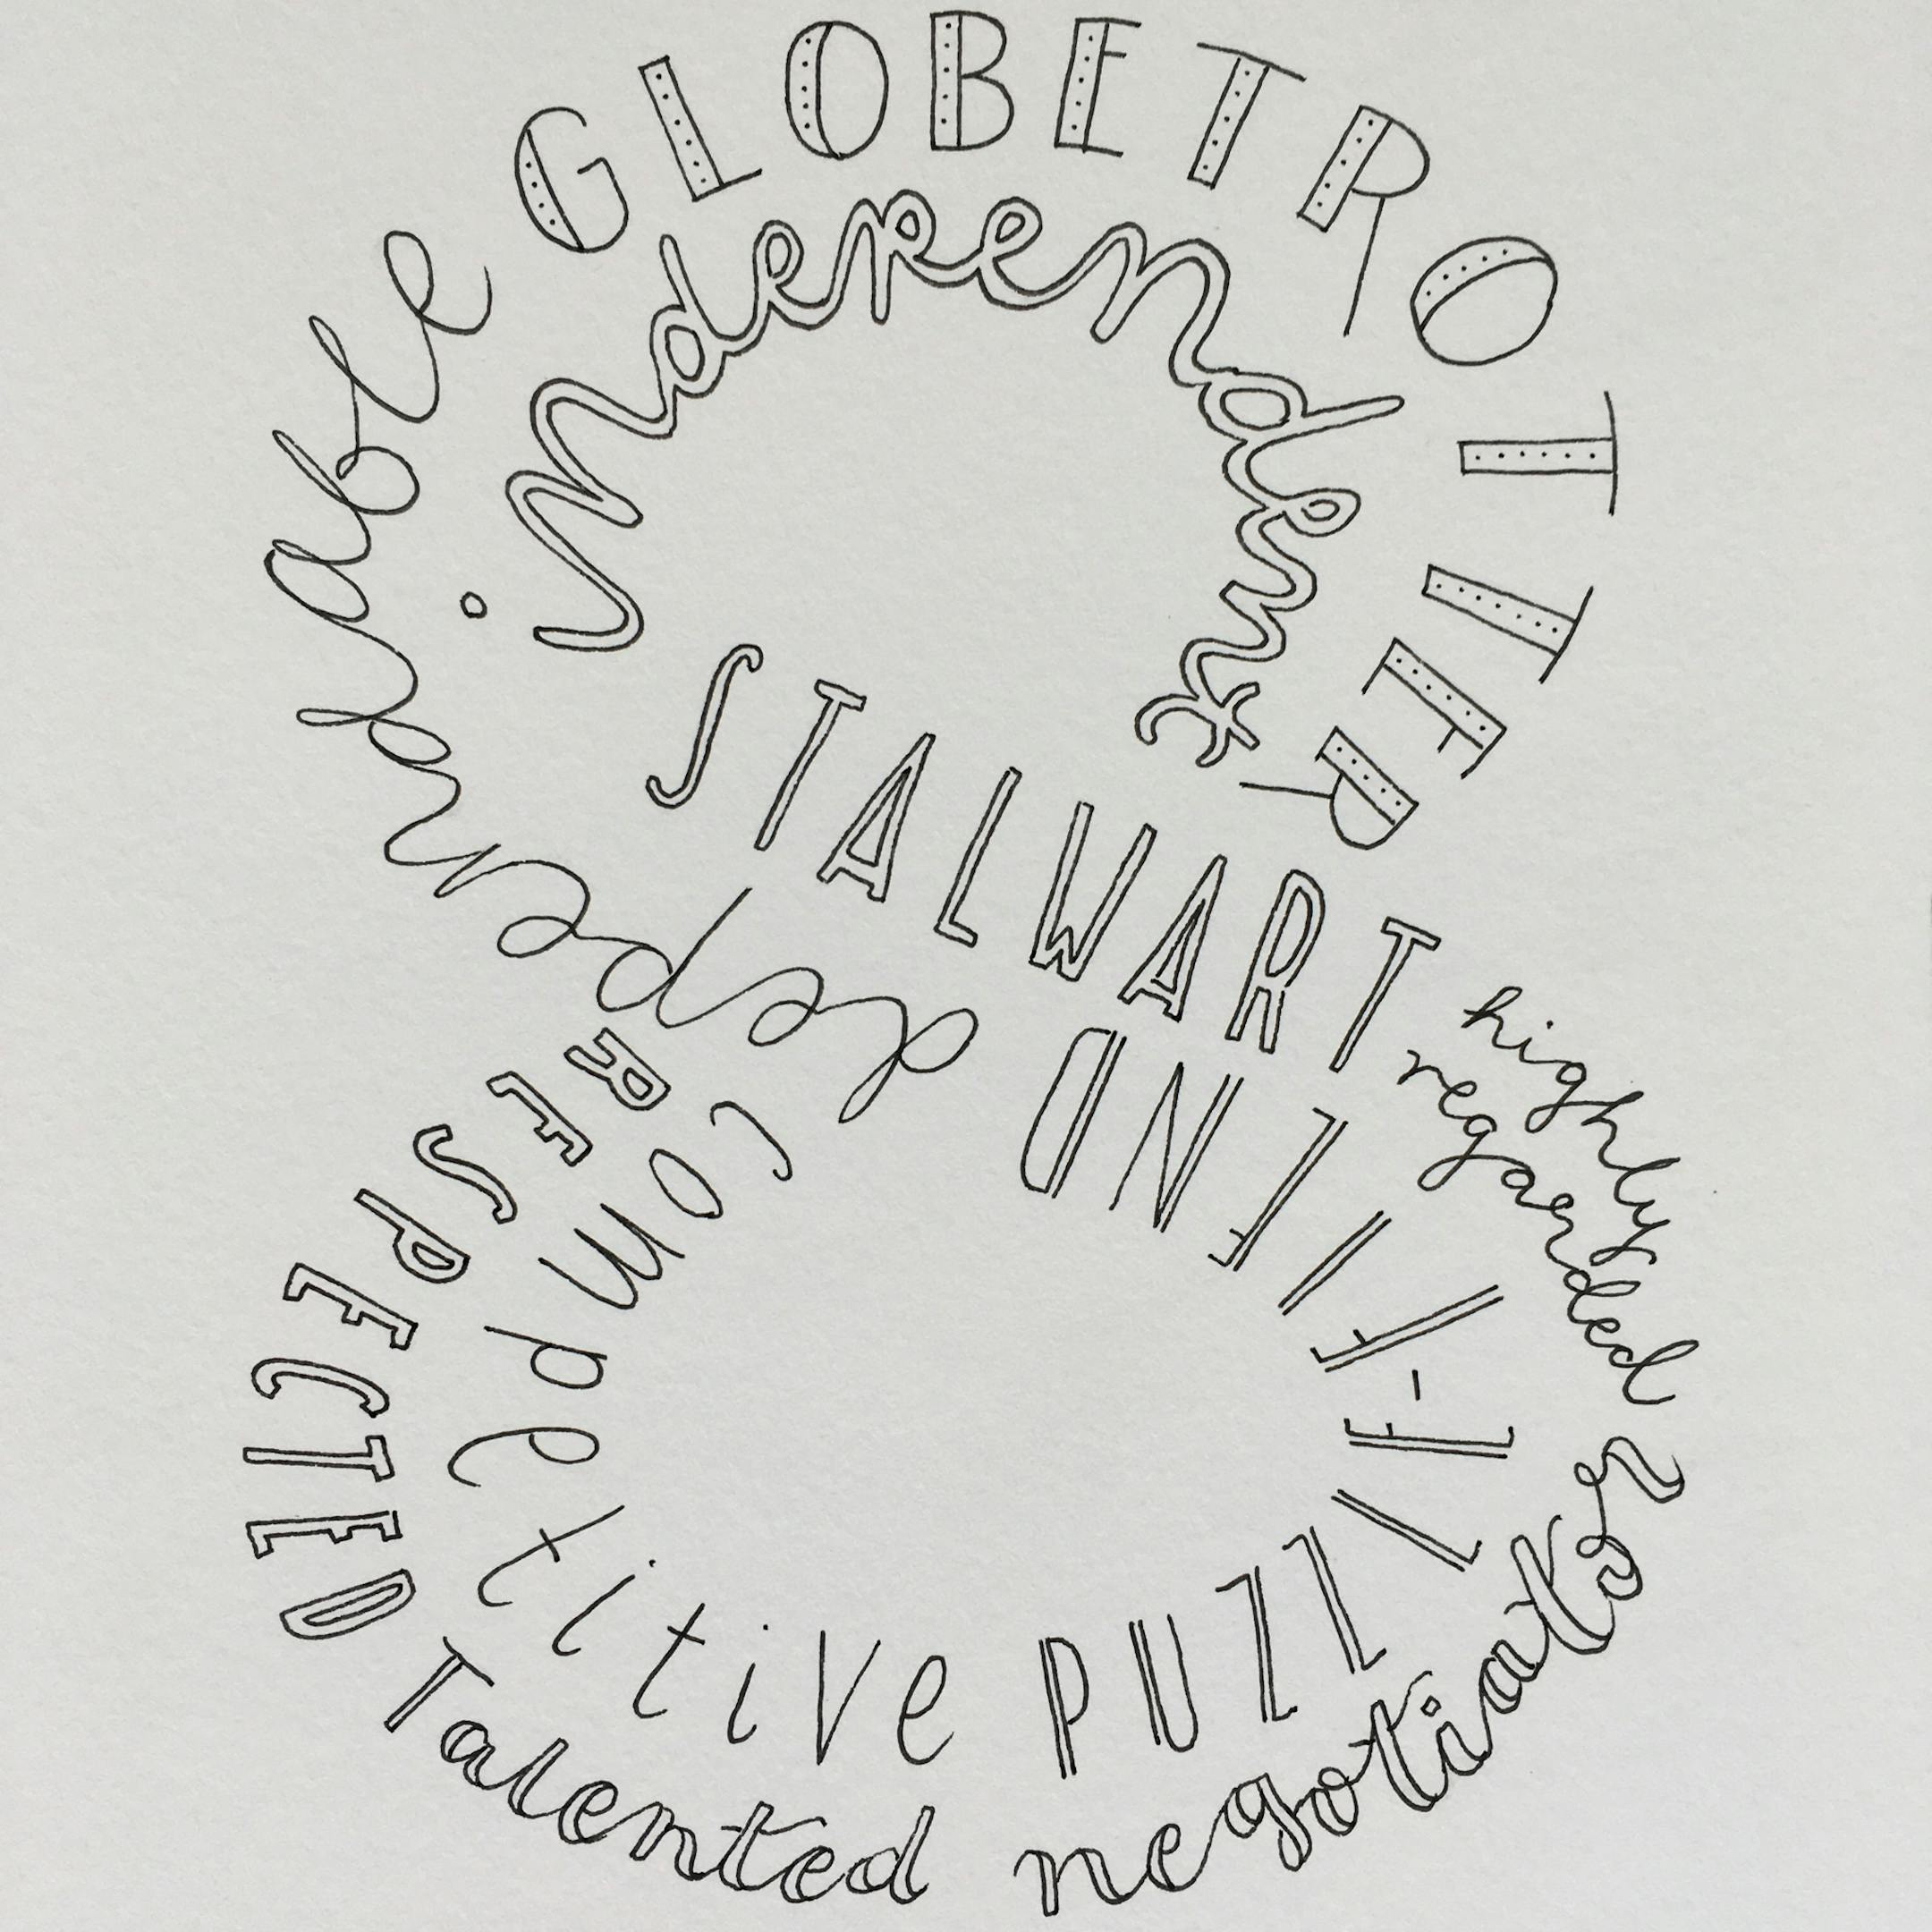 dependable
GLOBETROTTER
independent
STALWART
highly
regarded
Talented negotiator
RESPECTED
competitive
PUZZLE-FIEND